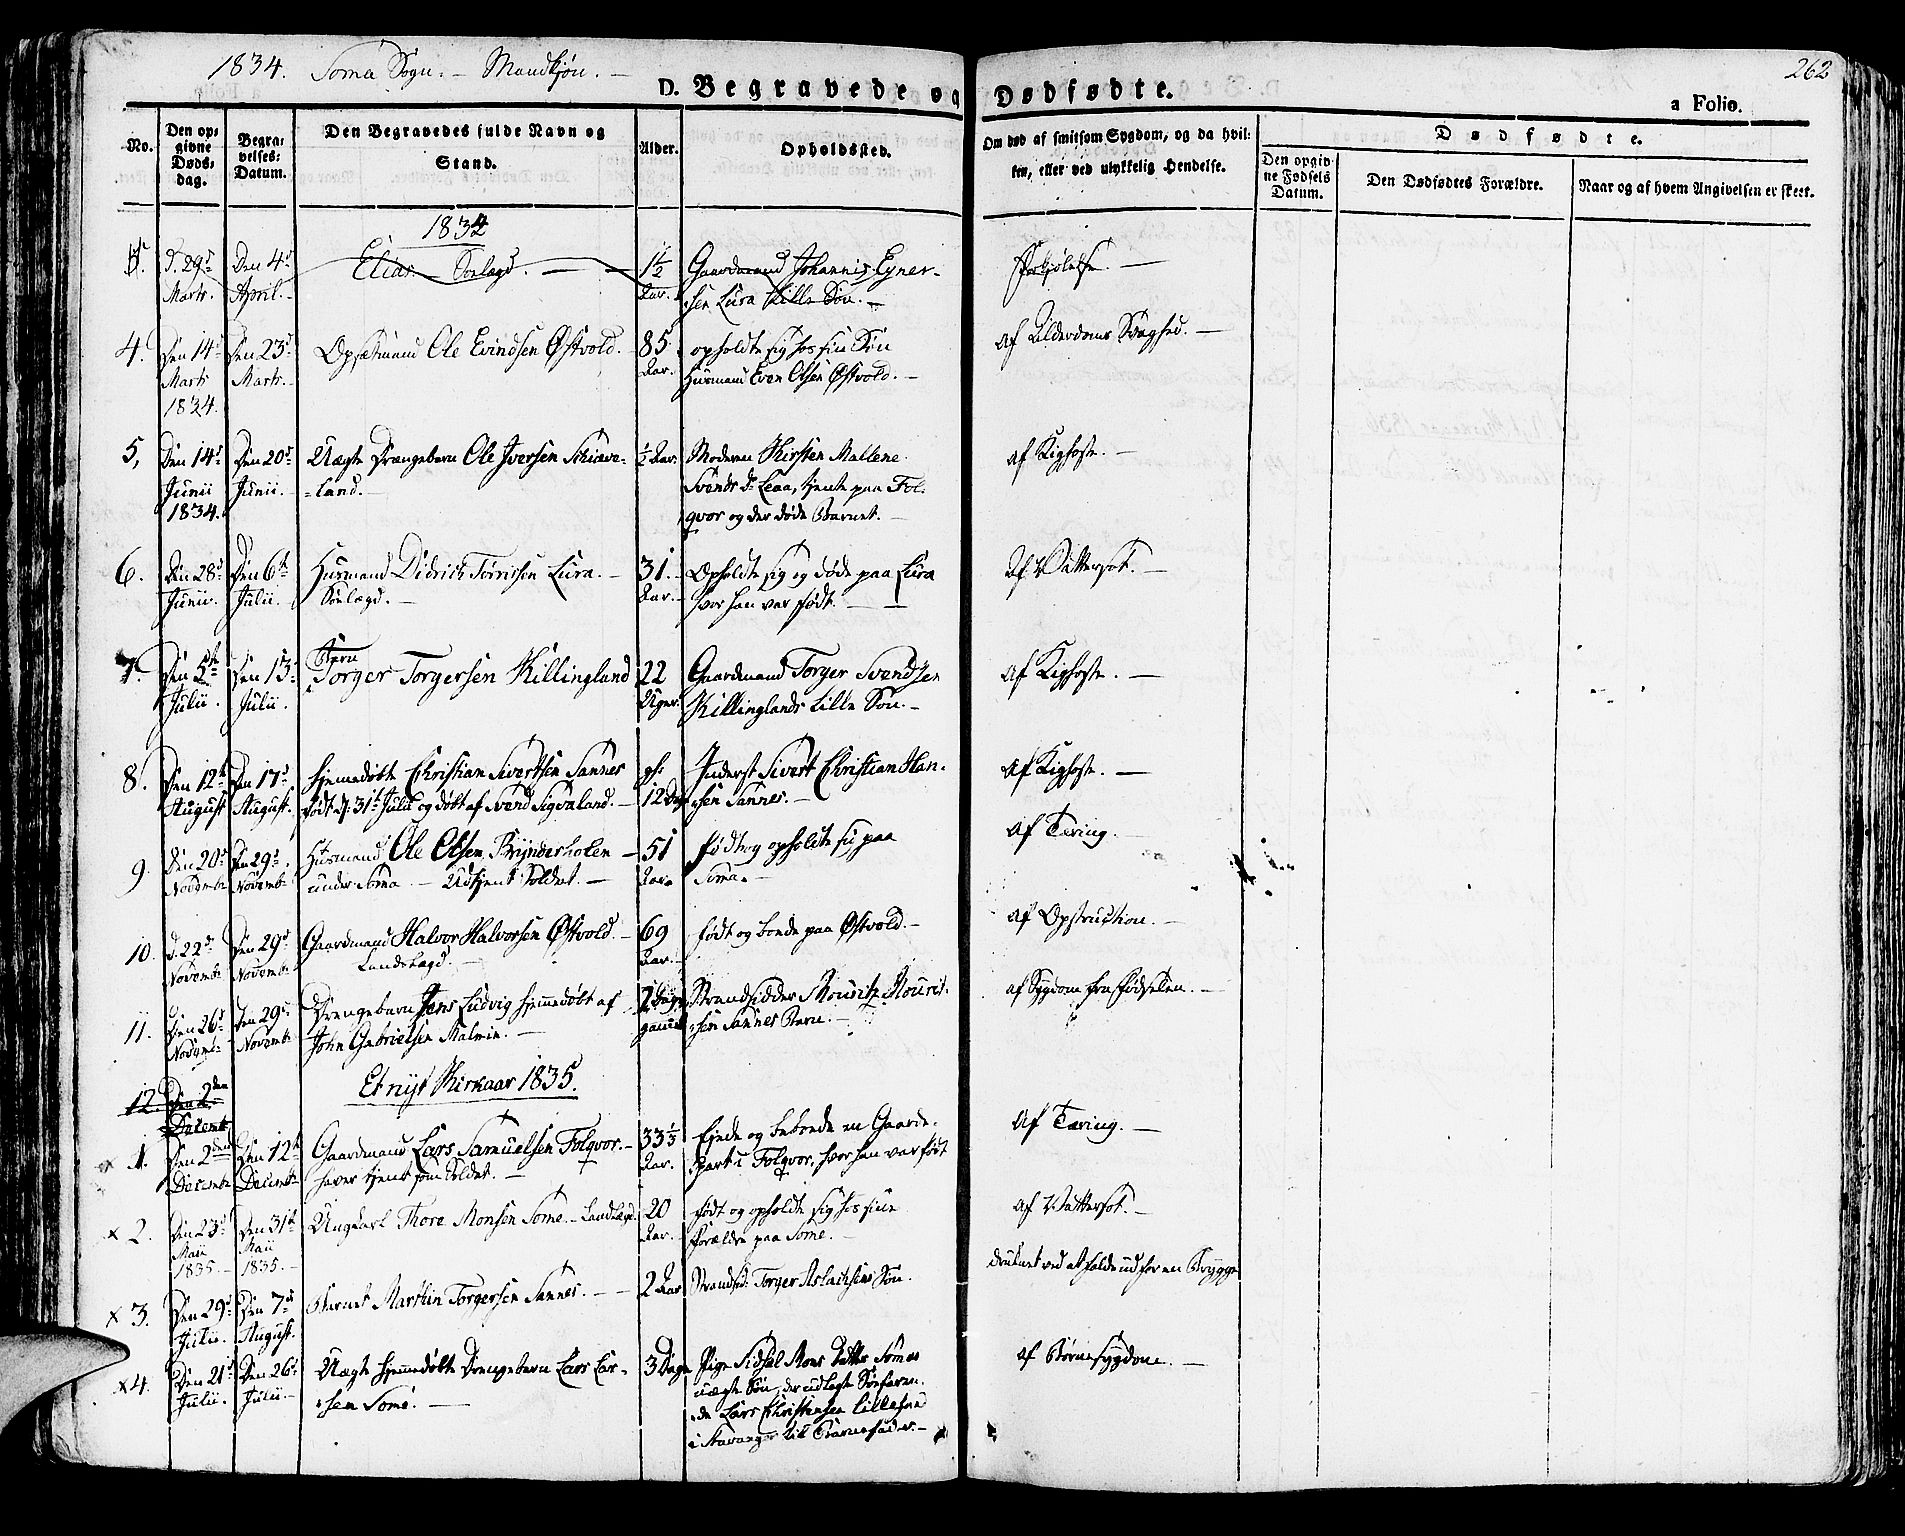 1834. Soma Sogn. – Mandkjøn. –
262
D. Begravede og Dødfødte.
a Folio.
No.
Den opgivne Dødsdag.
Begravelses-Datum.
Den Begravedes fulde Navn og Stand.
Alder.
Opholdssted.
Om død af smitsom Sygdom, og da hvilken, eller ved ulykkelig Hendelse.
Dødfødte.
Den opgivne Fødsels Datum.
Den Dødfødtes Forældre.
Naar og af hvem Angivelsen er skeet.
1834
d. 29d Marts. Den 4d April. – Elias – Sølagd. – 1½ Aar. Gaardmand Johannis Egner-
sen Lura Lille Søn. –
Forkjølelse. –
4. Den 14d Marts 1834. Den 23d Marts. – Opsætmand Ole Evindsen Østvold. 85 Aar. opholdte sig hos sin Søn
Husmand Even Olsen Østvold. –
af Alderdoms Svaghed. –
5, Den 14d Junii 1834. Den 20d Junii. Uægte Drengebarn Ole Iversen Schieve-
land. –
½ Aar. Moderen Kirsten Mallene
Svends D. Leaa, tjente paa Fol-
qvor og der døde Barnet. –
af Kighoste. –
6. Den 28d Junii. Den 6te Julii. Husmand Didrich Tørrissen Lura. –
Sølægd. –
31. Aar. Opholdte sig og døde paa Lura
hvor han var født. –
Af Vattersot. –
7. Den 5te Julii. Den 13. Julii. Barn
Torger Torgersen Killingland 22 Uger. Gaardmand Torger Svendsen
Killinglands Lille Søn. –
af Kighoste. –
8. Den 12te August Den 17d August. Hjemmedøbte Christian Sivertsen Sannes
født d. 31te Julii og døbt af Svend Sigvaland. –
12 Dag Inderst Sivert Christian Han-
sen Sannes. –
af Kighoste. –
9. Den 20d Novembr Den 29d Novembr Husmand Ole Olsen Bryndesholen –
under Soma. – Udtjent Soldat. –
51 Aar. født og opholdte sig paa
Soma. –
af Tæring. –
10. d. 22d Novembr Den 29d Novembr Gaardmand Halvor Halvorsen Østvold. –
Landelagd. –
69 Aar. født og boede paa Østvold. –
af Opstruction. –
11. Den 26d Novembr Den 29d Novembr Drengebarn Jens Ludvig hjemmedøbt af
John Gabrielsen Malmin. –
7 Dage gammel Strandsidder Mouritz Mourit-
sen Sannes Barn. –
af Sygdom fra Fødselen. –
12. Den 2den Decembr
Et nyt Kirkaar 1835.
x 1. Den 2den Decembr Den 12te Decembr Gaardmand Lars Samuelsen Folqvor. –
haver tjent som Soldat. –
33⅓ Aar. Ejede og beboede en Gaarde-
part i Folqvor, hvor han var født
Af Tæring. –
x 2. Den 23d Maii 1835. – Den 31te Maii 1835. – Ungkarl Thore Monsen Some. – Landlægd. 20 Aar. født og opholdte sig hos sine
Forældre paa Some. –
af Vattersot. –
x 3. Den 29d Julii. Den 7de August. Barnet Marthin Torgersen Sannes. – – 2 Aar Strandsid: Torger Aslachsens Søn.
druknet ved at falde ud for en Brygge
x 4. Den 21d Julii. Den 26d Julii. – Uægte hjemmedøbte Drengebarn Lars Lar-
sen Some. –
3 Dage Pige Sidsel Mons Datter Somes
uægte Søn, der udlagte Søefaren-
de Lars Christensen Lillesund
i Stavanger til Barnefader. –
af Børnesygdom. –